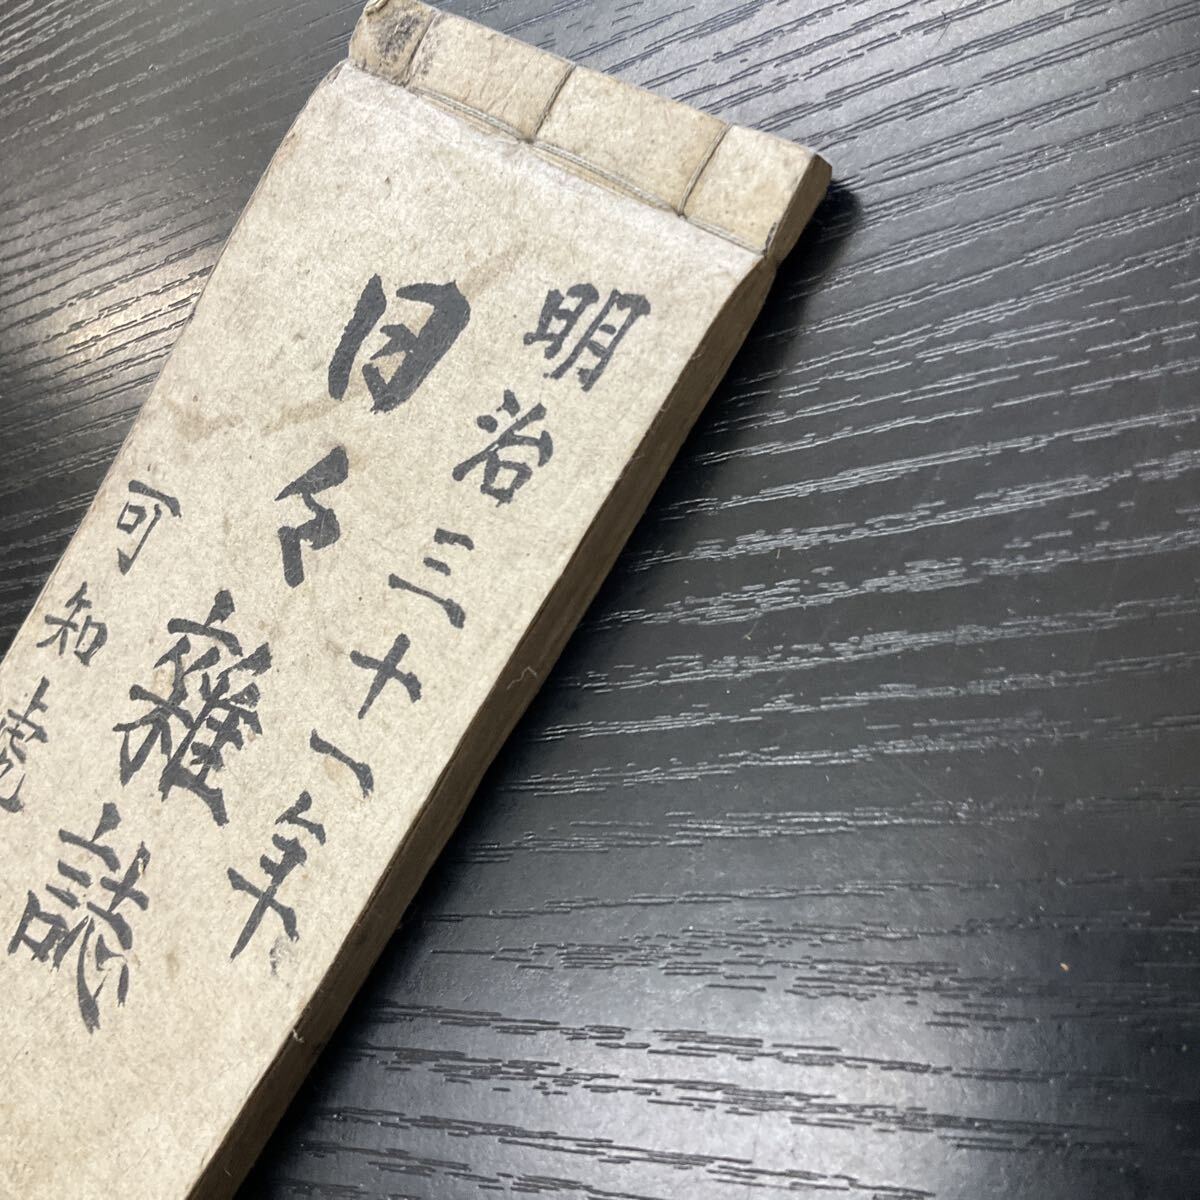 明治三十一年
日々雜誌
可知